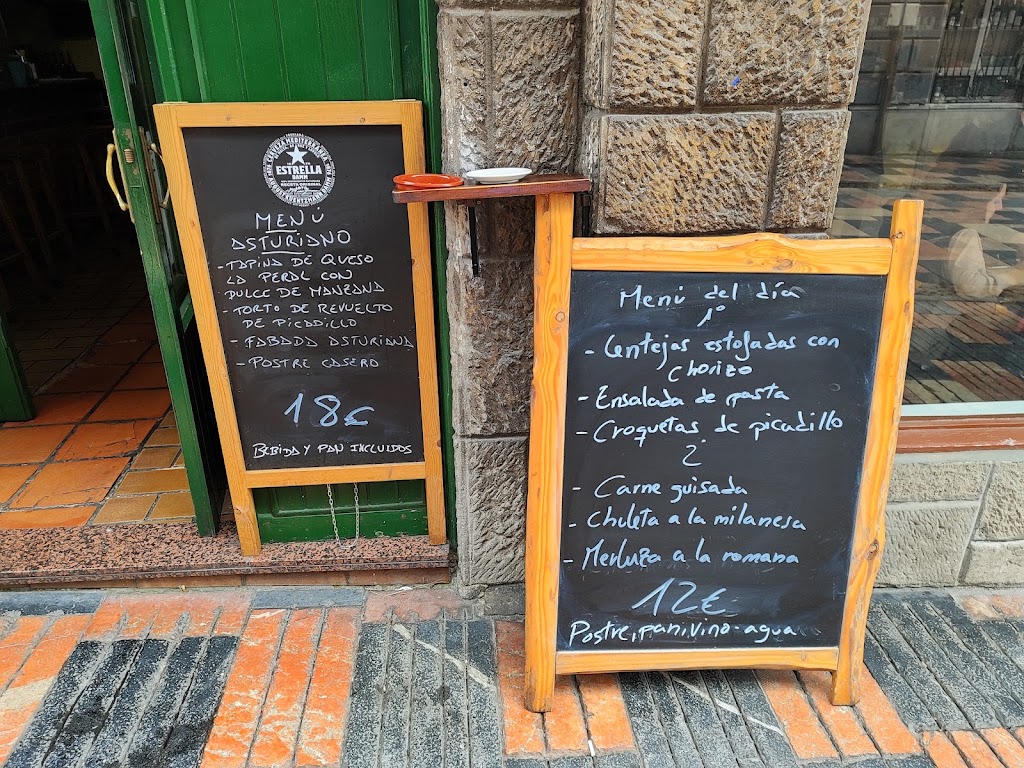 CERVEZA MEDITERRÁNEA
ESTRELLA
DAMM
RECETA ORIGINAL
AUGUST KUENTZMANN DAMM
MENÚ
ASTURIANO
-TAPINA DE QUESO
LA PERAL CON
DULCE DE MANZANA
- TORTO DE REVUELTO
DE PICADILLO
- FABADA ASTURIANA
- POSTRE CASERO
18€
BEBIDA Y PAN INCLUIDOS
Menú del día
1º
- Lentejas estofadas con
chorizo
- Ensalada de pasta
- Croquetas de picadillo
2
- Carne guisada
- Chuleta a la milanesa
- Merluza a la romana
12€
Postre, pan, vino-agua